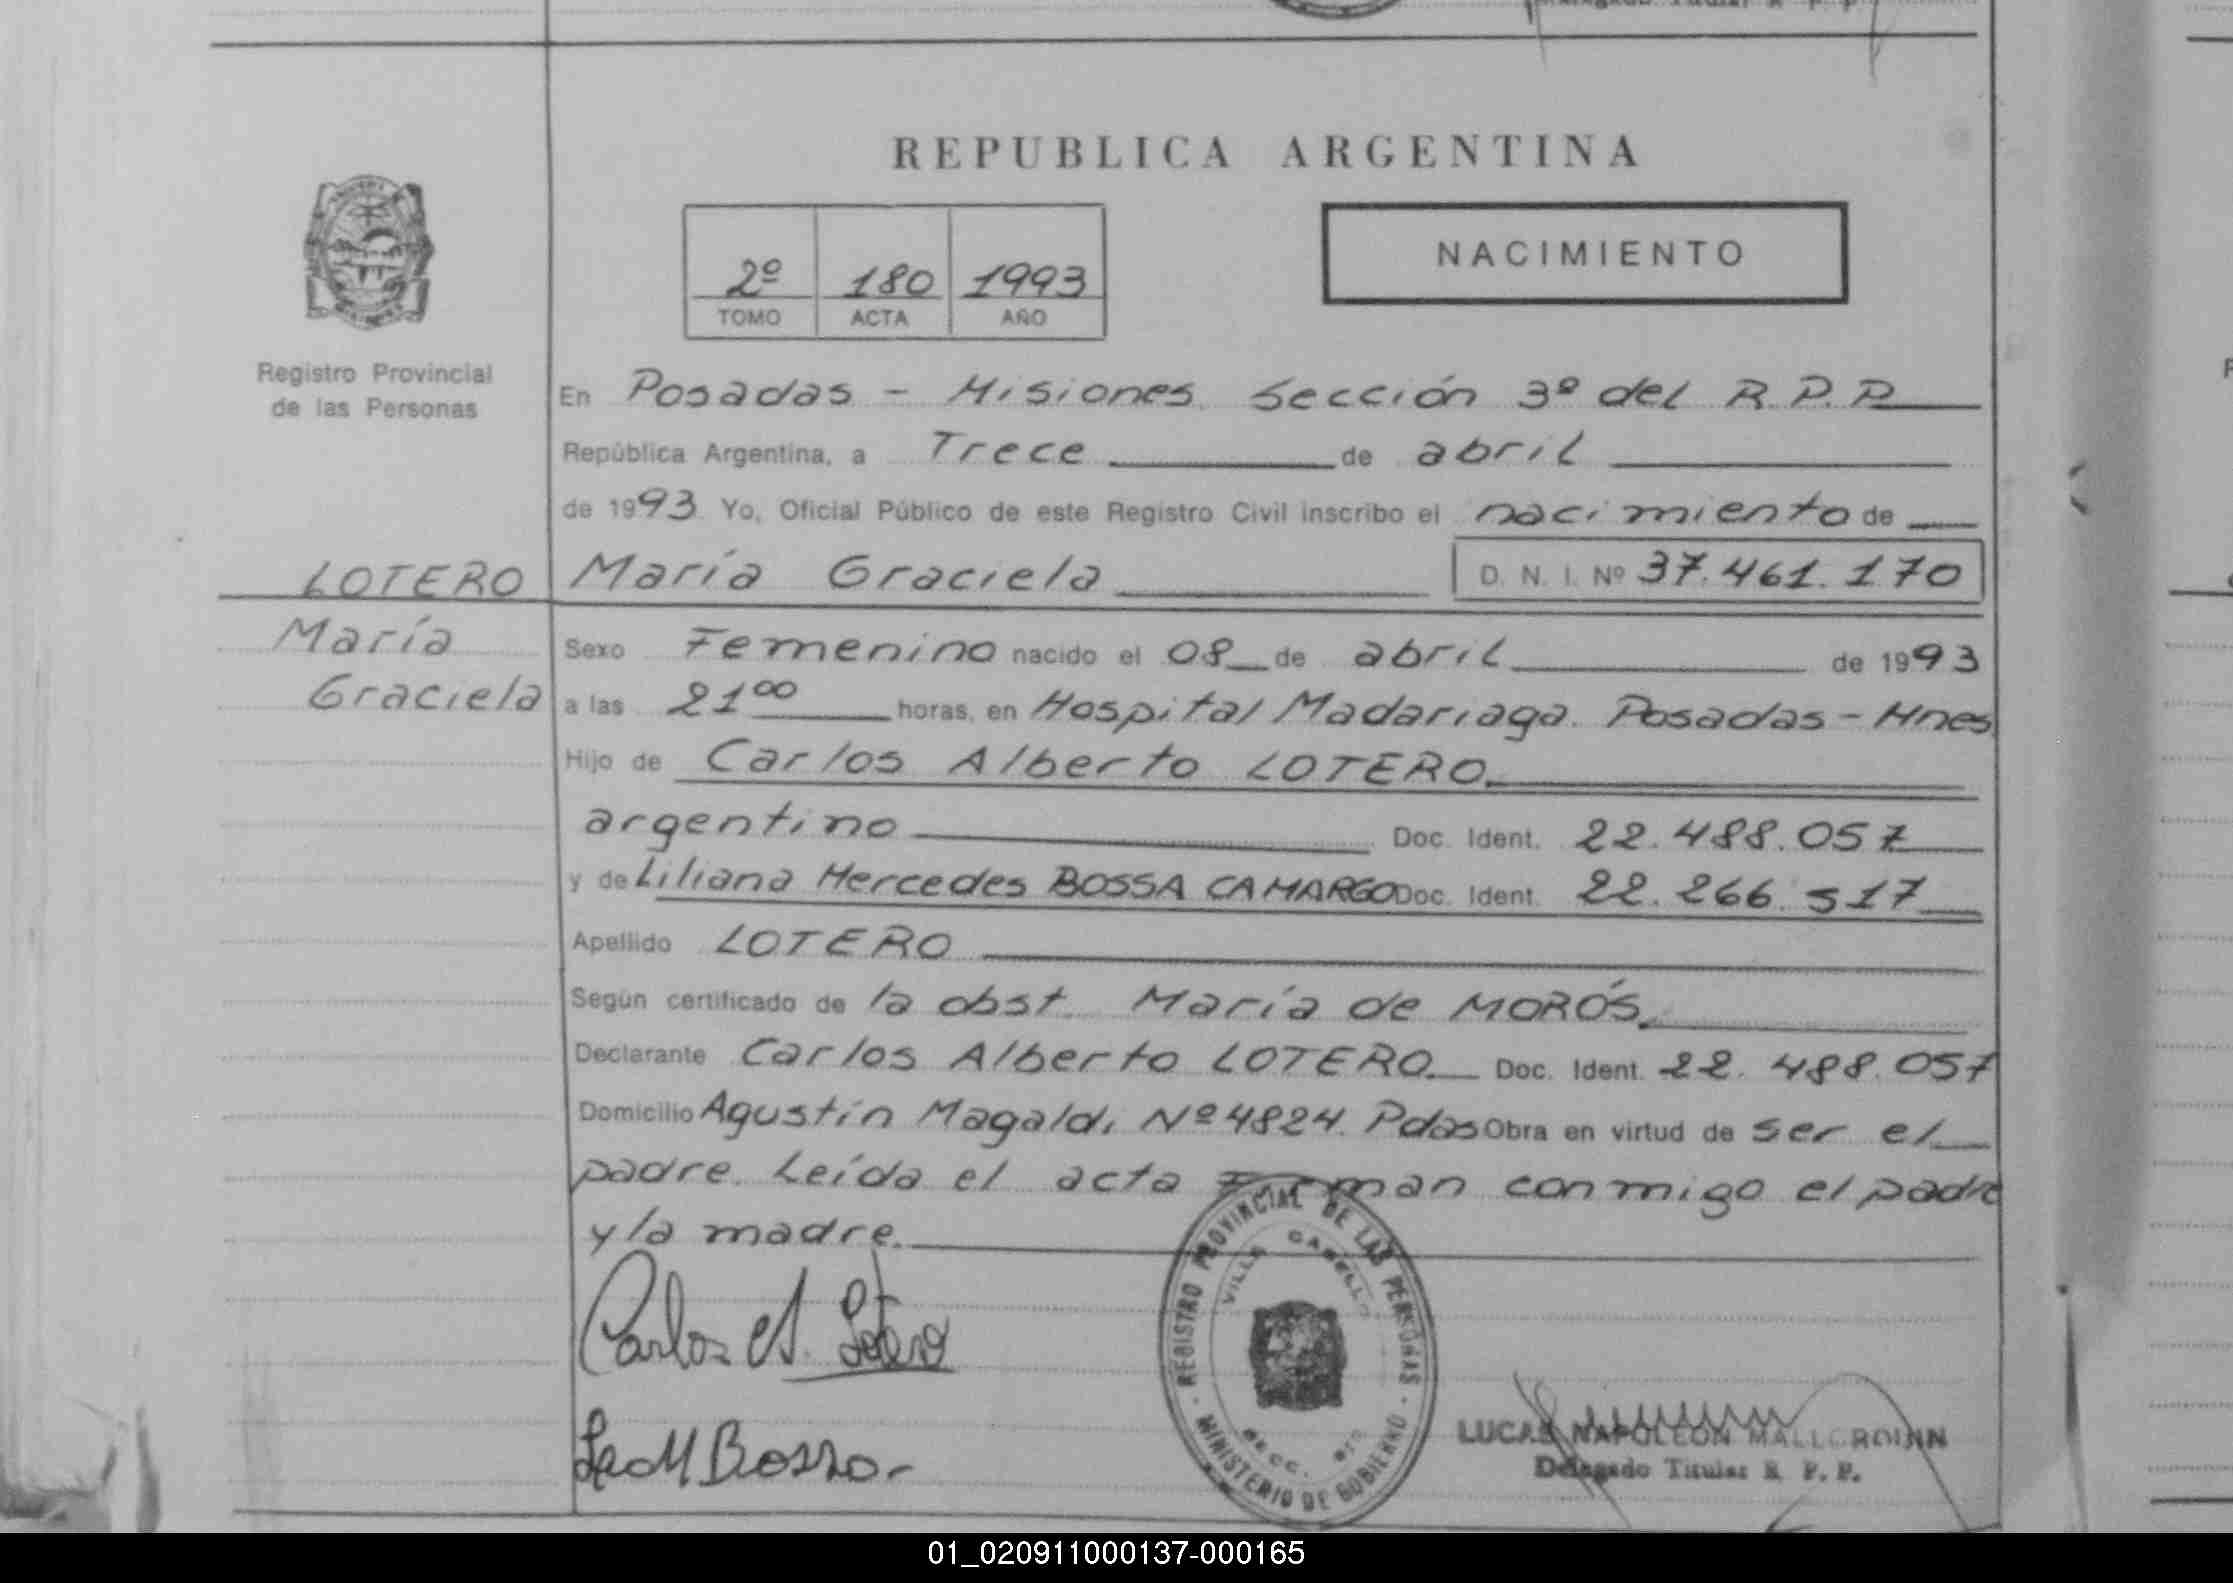 REPUBLICA ARGENTINA
2º 180 1993
TOMO ACTA AÑO
NACIMIENTO
Registro Provincial
de las Personas
En Posadas - Misiones. Sección 3º del R.P.P
República Argentina, a Trece de abril
de 1993 Yo, Oficial Público de este Registro Civil inscribo el nacimiento de
LOTERO María Graciela D. N. I. Nº 37.461.170
María
Graciela
Sexo Femenino nacido el 08 de abril de 1993
a las 21⁰⁰ horas, en Hospital Madariaga. Posadas - Mnes
Hijo de Carlos Alberto LOTERO
argentino Doc. Ident. 22.488.057
y de Liliana Mercedes BOSSA CAMARGO Doc. Ident. 22.266.517
Apellido LOTERO
Según certificado de la obst. María de MORÓS.
Declarante Carlos Alberto LOTERO. Doc. Ident. 22.488.057
Domicilio Agustín Magaldi Nº 4824. Pdas Obra en virtud de ser el
padre. Leída el acta Firman conmigo el padre
y la madre.
Carlos A. Lotero
REGISTRO PROVINCIAL DE LAS PERSONAS
VILLA CABELLO
SECC.
MINISTERIO DE GOBIERNO
Bossa
LUCAS NAPOLEON
Delegado Titular R. P. P.
01_020911000137-000165